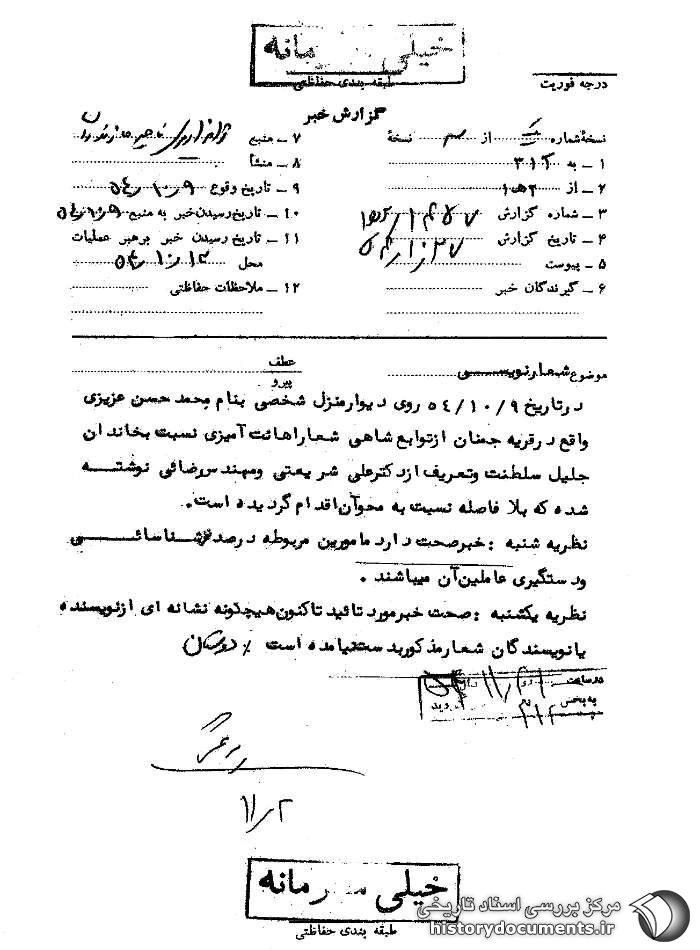 خیلی محرمانه
طبقه بندی حفاظتی
درجه فوریت
گزارش خبر
نسخهٔ شماره یک از سه نسخهٔ
۱ - به ۳۱۲
۲ - از
۳ - شماره گزارش
۴ - تاریخ گزارش
۵ - پیوست
۶ - گیرندگان خبر
۷ - منبع ژاندارمری ناحیه مازندران
۸ - منشأ
۹ - تاریخ وقوع ۵۴/۱۰/۹
۱۰ - تاریخ رسیدن خبر به منبع ۵۴/۱۰/۹
۱۱ - تاریخ رسیدن خبر برهبر عملیات
محل ۵۴/۱۰/۱۲
۱۲ - ملاحظات حفاظتی
موضوع شعارنویسی
عطف
پیرو
در تاریخ ۵۴/۱۰/۹ روی دیوار منزل شخصی بنام محمد حسن عزیزی
واقع در قریه جمنان از توابع شاهی شعار اهانت آمیزی نسبت بخاندان
جلیل سلطنت و تعریف از دکتر علی شریعتی و مهندس رضائی نوشته
شده که بلا فاصله نسبت به محو آن اقدام گردیده است.
نظریه شنبه : خبر صحت دارد مامورین مربوطه در صدد شناسائی
و دستگیری عاملین آن میباشند .
نظریه یکشنبه : صحت خبر مورد تائید تاکنون هیچگونه نشانه ای از نویسنده
یا نویسندگان شعار مذکور بدست نیامده است
در ساعت
به بخش ۳۱۲
۱۱/۲
خیلی محرمانه
طبقه بندی حفاظتی
مرکز بررسی اسناد تاریخی
historydocuments.ir